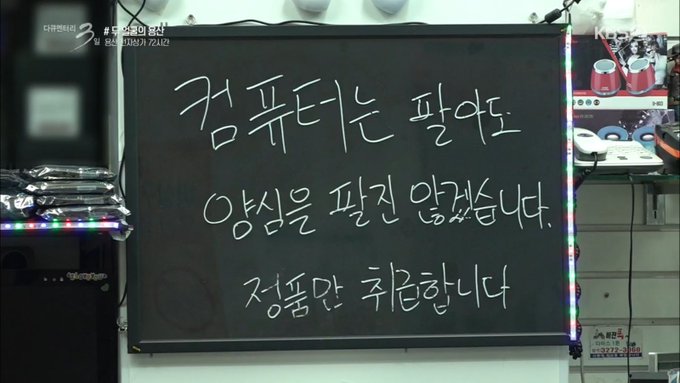 다큐멘터리
3일
# 두 얼굴의 용산
용산 전자상가 72시간
KBS
컴퓨터는 팔아도
양심을 팔진 않겠습니다.
정품만 취급합니다
3272-3